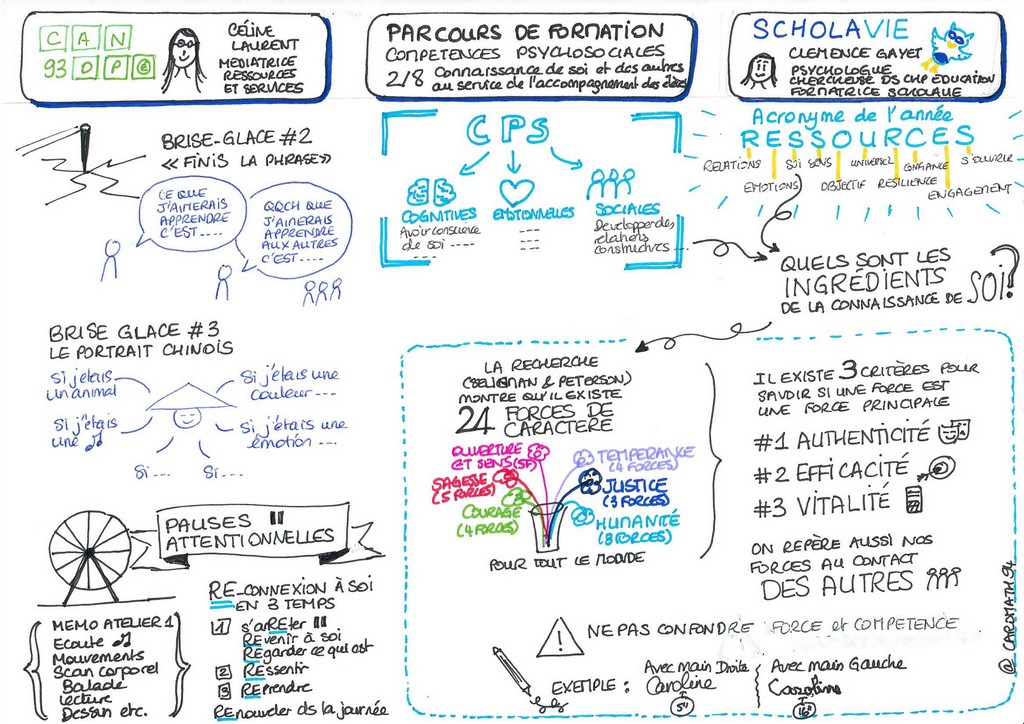 CAN
93 OPÉ
CÉLINE
LAURENT
MÉDIATRICE
RESSOURCES
ET SERVICES
PARCOURS DE FORMATION
COMPETENCES PSYCHOSOCIALES
2/8 Connaissance de soi et des autres
au service de l'accompagnement des élèves
SCHOLAVIE
CLEMENCE GAYET
PSYCHOLOGUE
CHERCHEUSE DS CHP EDUCATION
FORMATRICE SCHOLAVIE
BRISE-GLACE #2
<< FINIS LA PHRASE>>
CE QUE
J'AIMERAIS
APPRENDRE
C'EST ....
QQCH QUE
J'AIMERAIS
APPRENDRE
AUX AUTRES
C'EST ....
CPS
COGNITIVES
Avoir conscience
de soi ----
---
EMOTIONNELLES
---
---
SOCIALES
Développer des
relations
constructives ...
Acronyme de l'année
RESSOURCES
RELATIONS
EMOTIONS
SOI
SENS
OBJECTIF
UNIVERSEL
RÉSILIENCE
CONFIANCE
ENGAGEMENT
S'OUVRIR
QUELS SONT LES
INGRÉDIENTS
DE LA CONNAISSANCE DE SOI?
BRISE GLACE #3
LE PORTRAIT CHINOIS
Si j'étais
un animal
Si j'étais une
couleur ---
Si j'étais
une ♫
Si j'étais une
émotion ---
Si ---
Si ---
LA RECHERCHE
(SELIGMAN & PETERSON)
MONTRE QU'IL EXISTE
24 FORCES DE
CARACTERE
OUVERTURE
ET SENS (5F)
SAGESSE
(5 FORCES)
COURAGE
(4 FORCES)
TEMPERANCE
(4 FORCES)
JUSTICE
(3 FORCES)
HUMANITÉ
(3 FORCES)
POUR TOUT LE MONDE
IL EXISTE 3 CRITÈRES POUR
SAVOIR SI UNE FORCE EST
UNE FORCE PRINCIPALE
#1 AUTHENTICITÉ
#2 EFFICACITÉ
#3 VITALITÉ
ON REPÈRE AUSSI NOS
FORCES AU CONTACT
DES AUTRES
PAUSES
ATTENTIONNELLES
MEMO ATELIER 1
Ecoute ♫
Mouvements
Scan corporel
Balade
Lecture
Dessin etc.
RE-CONNEXION À SOI
EN 3 TEMPS
1 s'aRREter
REvenir à soi
REgarder ce qui est
2 REssentir
3 REprendre
REnouveler ds la journée
! NE PAS CONFONDRE FORCE et COMPETENCE
EXEMPLE :
Avec main Droite
Caroline
5"
Avec main Gauche
Caroline
16"
@ CAROMATH94